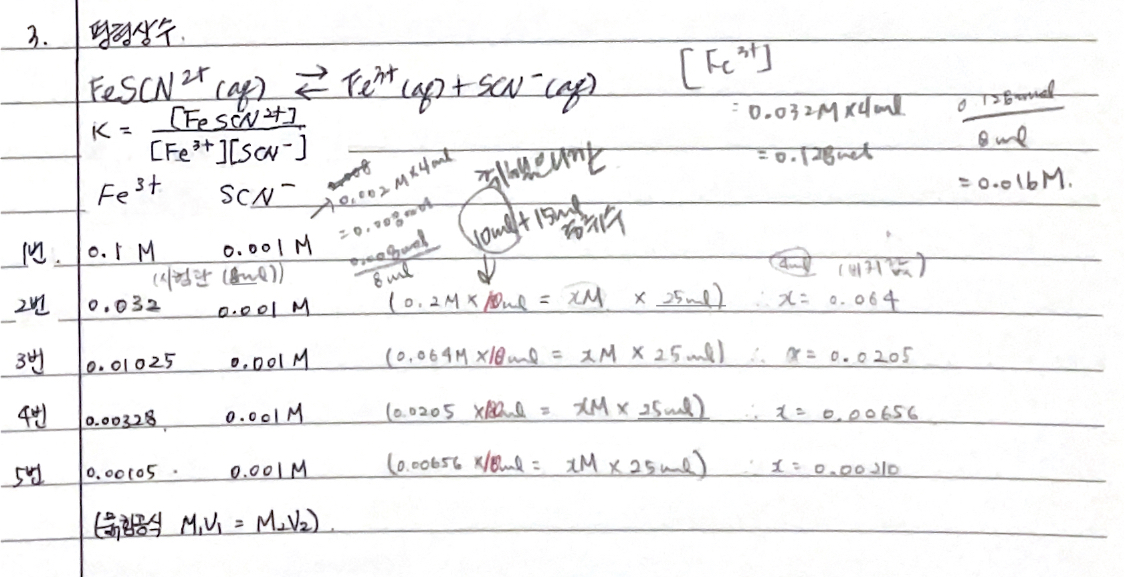 3. 평형상수.
FeSCN²⁺(aq) ⇄ Fe³⁺(aq) + SCN⁻(aq)
K = [FeSCN²⁺] / [Fe³⁺][SCN⁻]
[Fe³⁺]
= 0.032M × 4ml
= 0.128mol
0.128mol / 8ml
= 0.016M.
Fe³⁺ SCN⁻
0.002M × 4ml
= 0.008mol
0.008mol / 8ml
10ml + 15ml
증류수
1번. 0.1 M 0.001 M
(시험관 (8ml))
4ml (버리고)
2번 0.032 0.001 M (0.2M × 10ml = xM × 25ml) ∴ x = 0.064
3번 0.01025 0.001 M (0.064M × 10ml = xM × 25ml) ∴ x = 0.0205
4번 0.00328 0.001 M (0.0205 × 10ml = xM × 25ml) ∴ x = 0.00656
5번 0.00105 0.001 M (0.00656 × 10ml = xM × 25ml) ∴ x = 0.00210
(묽힘공식 M₁V₁ = M₂V₂).